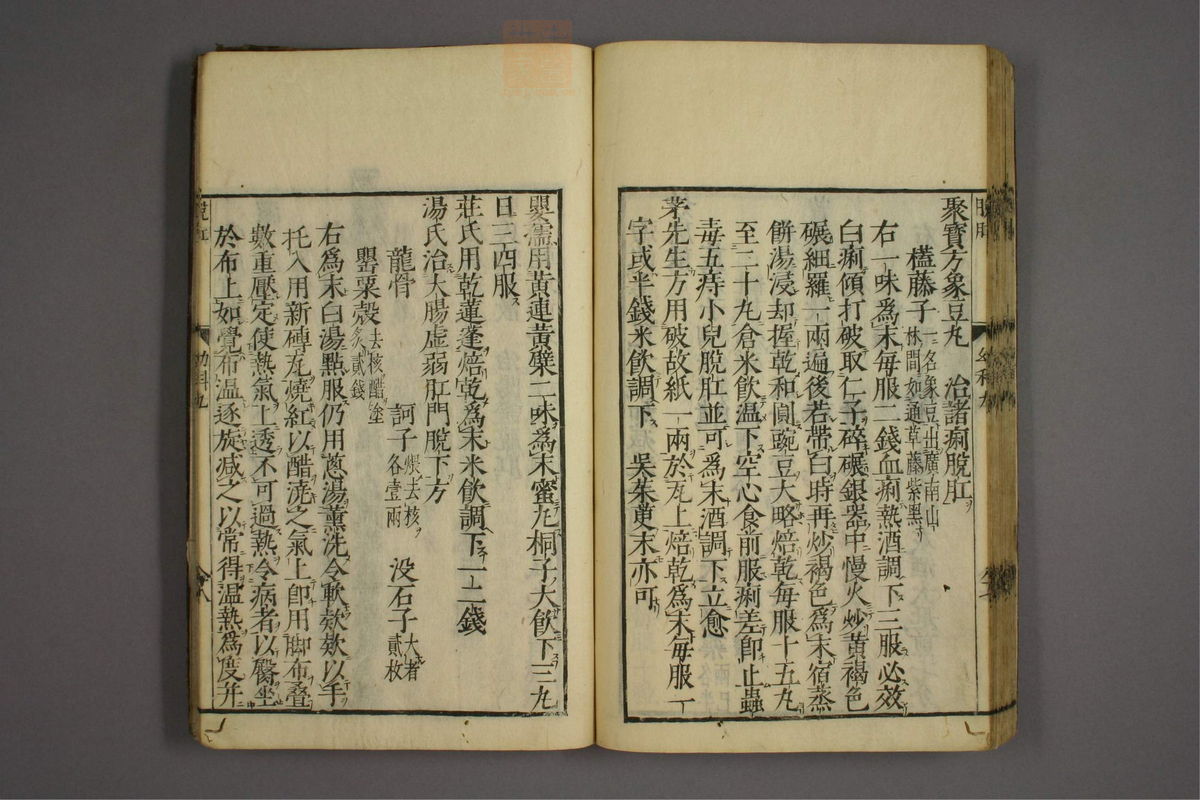 聚寶方象豆丸　治諸痢脫肛
榼藤子一名象豆出廣南山林間如通草藤紫黑
右一味爲末毎服二錢血痢熱酒調下三服必效
白痢傾打破取仁子碎碾銀器中慢火炒黃褐色
碾細羅一兩遍後若帶白時再炒褐色爲末宿蒸
餅湯浸却握乾和圓豌豆大略焙乾毎服十五丸
至二十丸倉米飲温下空心食前服痢差卽止蟲
毒五痔小兒脫肛並可爲末酒調下立愈
茅先生方用破故紙一兩於瓦上焙乾爲末毎服一
字或半錢米飲調下　吳茱萸末亦可
嬰孺用黃連黃蘗二味爲末蜜丸桐子大飲下三丸
日三四服
莊氏用乾蓮蓬焙乾爲末米飲調下一二錢
湯氏治大腸虛弱肛門脫下方
龍骨　訶子煨去核各壹兩　没石子大者貳枚
罌粟殼去核醋塗炙貳錢
右爲末白湯點服仍用蔥湯薰洗令軟款款以手
托入用新磚瓦燒紅以醋澆之氣上卽用脚布叠
數重壓定使熱氣上透不可過熱令病者以臀坐
於布上如覺布温逐旋減之以常得温熱爲度幷
幼科九